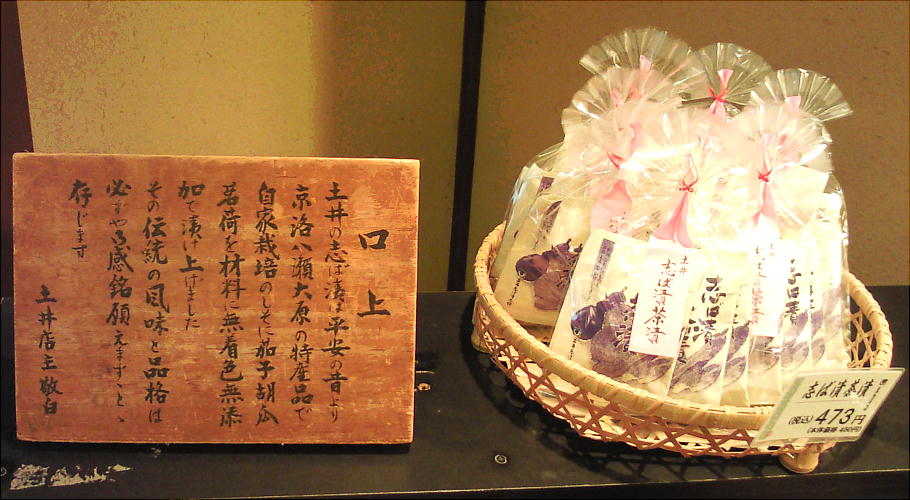 口上
土井の志ば漬は平安の昔より
京洛八瀬大原の特産品で
自家栽培のしそに茄子胡瓜
茗荷を材料に無着色無添
加で漬け上げました
その伝統の風味と品格は
必ずや御感銘願えますことゝ
存じます
土井店主敬白
土井
志ば漬茶漬
志ば漬
志ば漬茶漬
(税込)473円
(本体価格 450円)